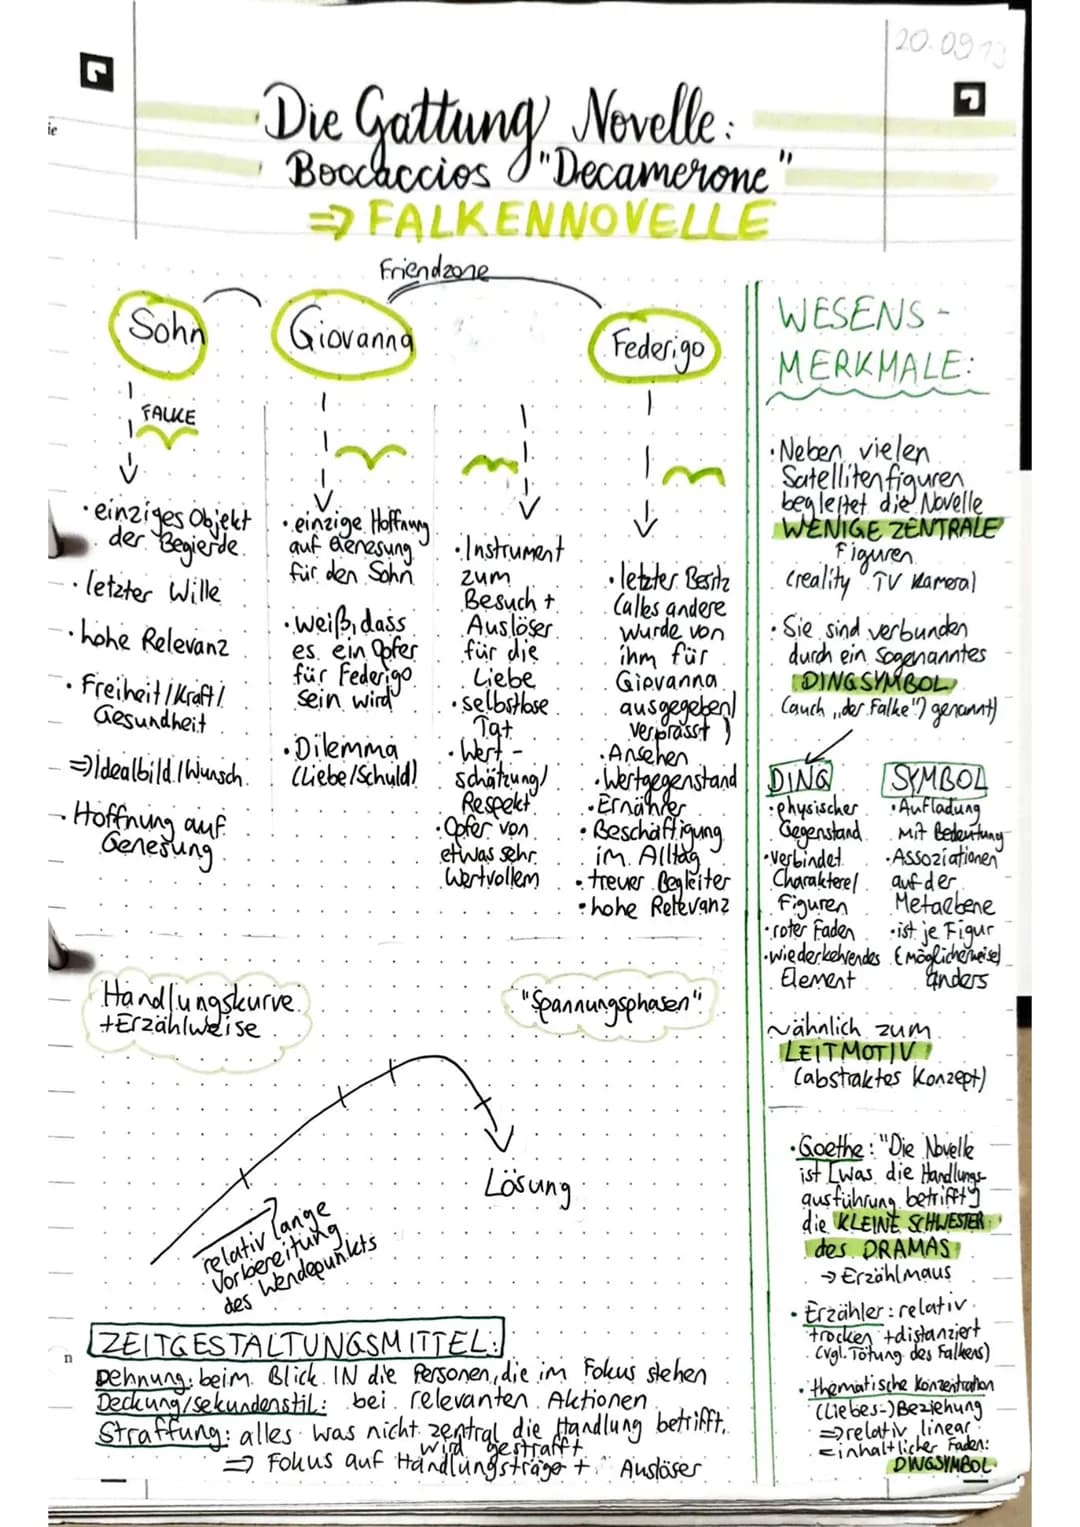 20.09.19
ie
Die Gattung Novelle:
Boccaccios "Decamerone"
=> FALKENNOVELLE
Friendzone
Sohn
Giovanna
Federigo
FALKE
· einziges Objekt
der Begierde
· letzter Wille
· hohe Relevanz
· Freiheit/Kraft/
Gesundheit
=> Idealbild/Wunsch
· Hoffnung auf
Genesung
· einzige Hoffnung
auf Genesung
für den Sohn
· weiß, dass
es ein Opfer
für Federigo
sein wird
· Dilemma
(Liebe/Schuld)
· Instrument
zum
Besuch +
Auslöser
für die
Liebe
· selbstlose
Tat
· Wert-
schätzung/
Respekt
· Opfer von
etwas sehr
Wertvollem
· letzter Besitz
(alles andere
wurde von
ihm für
Giovanna
ausgegeben/
verprasst)
· Ansehen
· Wertgegenstand
· Ernährer
· Beschäftigung
im Alltag
· treuer Begleiter
· hohe Relevanz
Handlungskurve
+Erzählweise
"Spannungsphasen"
Lösung
relativ lange
Vorbereitung
des Wendepunkts
ZEITGESTALTUNGSMITTEL:
Dehnung: beim Blick IN die Personen, die im Fokus stehen
Deckung/sekundenstil: bei relevanten Aktionen
Straffung: alles was nicht zentral die Handlung betrifft,
wird gestrafft
=> Fokus auf Handlungsträge + Auslöser
n
WESENS-
MERKMALE:
· Neben vielen
Satellitenfiguren
begleitet die Novelle
WENIGE ZENTRALE
Figuren
(reality TV Kamera)
· Sie sind verbunden
durch ein sogenanntes
DINGSYMBOL
(auch „der Falke") genannt)
DING
· physischer
Gegenstand
· verbindet
Charaktere/
Figuren
· roter Faden
· wiederkehrendes
Element
SYMBOL
· Aufladung
mit Bedeutung
· Assoziationen
auf der
Metaebene
· ist je Figur
(möglicherweise)
anders
~ähnlich zum
LEITMOTIV
(abstraktes Konzept)
· Goethe: "Die Novelle
ist [was die Handlungs-
ausführung betrifft]
die KLEINE SCHWESTER
des DRAMAS
→ Erzählmaus
· Erzähler: relativ
trocken + distanziert
(vgl. Tötung des Falkens)
· thematische Konzentration
(Liebes-)Beziehung
=> relativ linear
= inhaltlicher Faden:
DINGSYMBOL